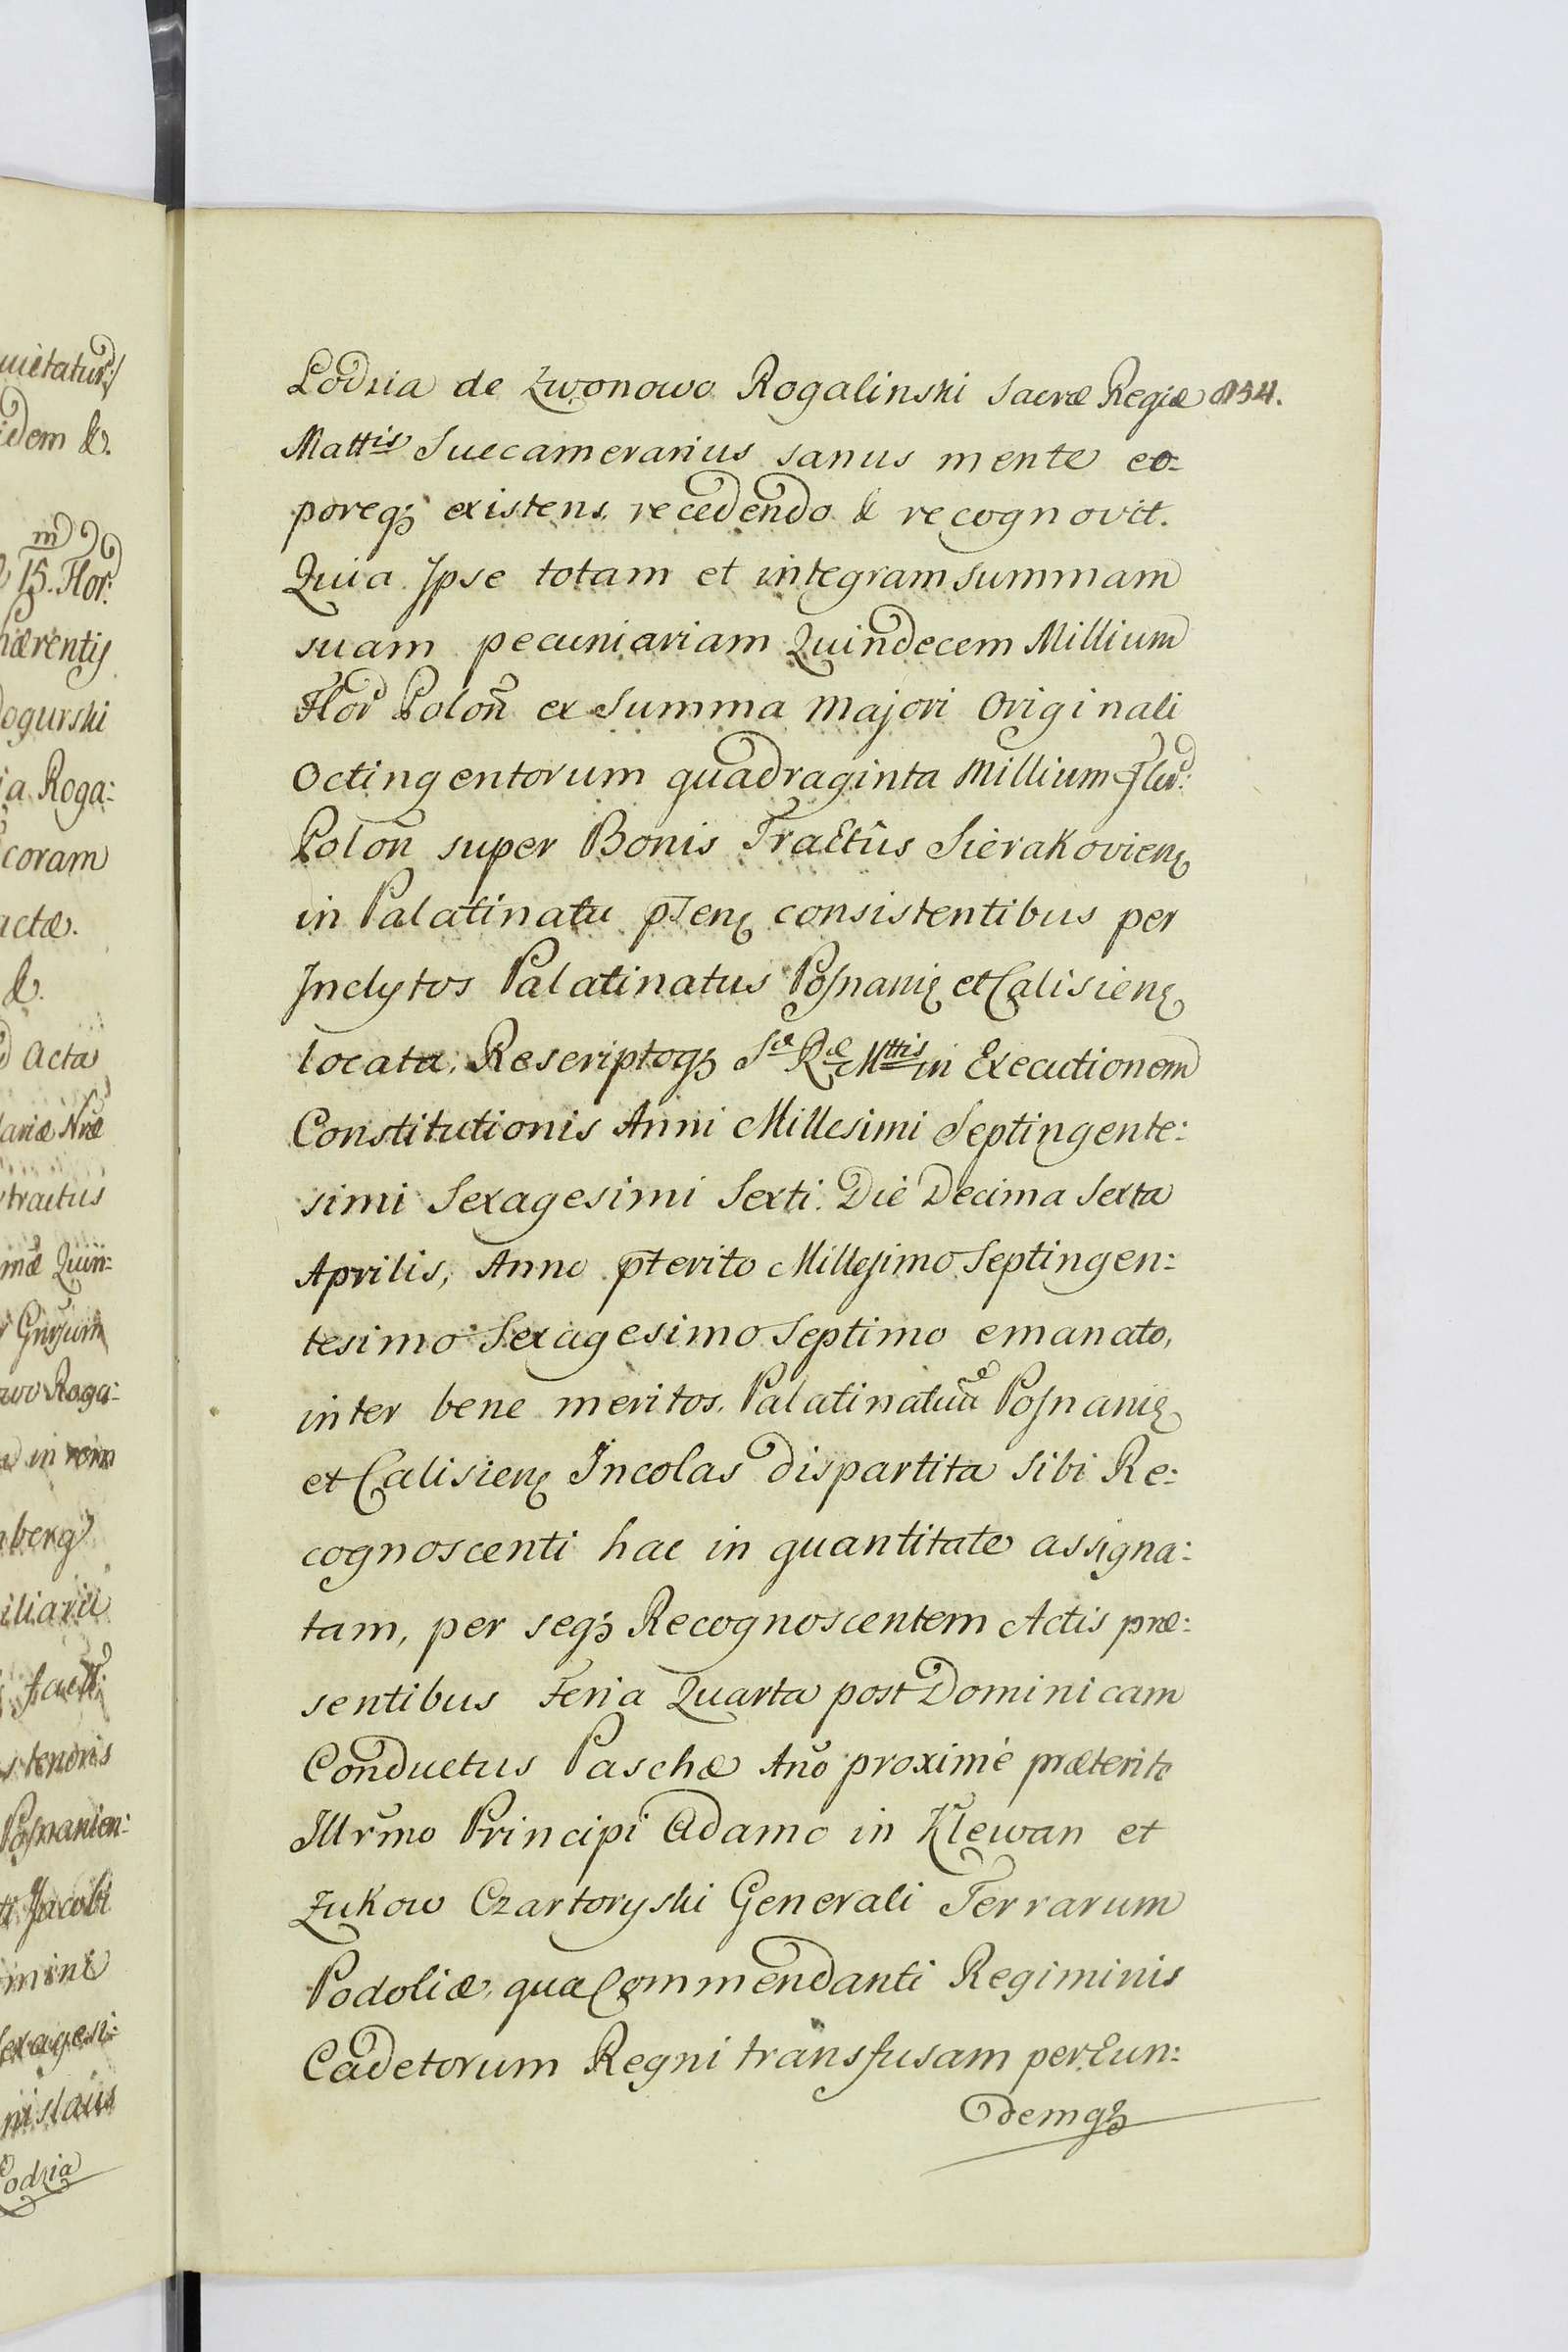 uietatur:/
idem &.
m
15. Flor:
hærentis
ogurski
ia Roga:
coram
actæ.
&.
Acta
lariæ Nræ
tractus
mæ Quin:
Roga:
berg
iliarii
tenoris
Posnanien:
Jacobi
mine
exagesi:
nislaus
Lodzia
Lodzia de Zwonowo Rogalinski Sacræ Regiæ 854.
Mattis Succamerarius sanus mente co-
poreqꝫ existens, recedendo & recognovit.
Quia Ipse totam et integram summam
suam pecuniariam Quindecem Millium
Flor Polon̄ ex Summa Majori Originali
Octingentorum quadraginta Millium Flor:
Polon̄ super Bonis Tractûs Sierakovien̄
in Palatinatu p̄sen̄ consistentibus per
Inclytos Palatinatus Posnanien̄ et Calisien̄
locata, Rescriptoqꝫ Sæ Ræ Mttis in Executionem
Constitutionis Anni Millesimi Septingente:
simi Sexagesimi Sexti. Die Decima Sexta
Aprilis, Anno p̄terito Millesimo Septingen:
tesimo Sexagesimo Septimo emanato,
inter bene meritos, Palatinatuũ Posnanien̄
et Calisien̄ Incolas dispartita sibi Re:
cognoscenti hac in quantitate assigna:
tam, per seqꝫ Recognoscentem Actis præ:
sentibus Feria Quarta post Dominicam
Conductus Paschæ Año proximè præterito
Illrm̃o Principi Adamo in Klewan et
Zukow Czartoryski Generali Terrarum
Podoliæ, qua Commendanti Regiminis
Cadetorum Regni transfusam per Eun:
demqꝫ